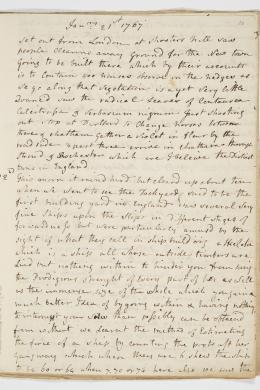 Janry 21st 1767
Set out from London at Shooters hill saw
people clearing away Ground for the New town
going to be built there which by their accounts
is to Contain 200 houses observe in the hedges as
we go along that Vegetation is as yet very little
advancd saw the radical leaves of Centaurea
& Verbascum nigrum Just shooting
out stop at Dartford & Change horses between
there & Chatham gather a Violet in flower by the
road side past three arrive in Chatham through
Stroud & Rochester which are I beleive the Dirtiest
towns in England
this morn it rained hard but cleard up about time
when we went to see the Dockyard said to be the
first building yard in England saw several very
fine Ships upon the Slips in Different stages of
forwardness but were particularly amused by the
sight of what they call in ship building a
which is a ship all whose outside timbers are
laid but nothing within to hinder you from seeing
the Prodigious strength of every part of her as well
as the immense size of the whole which gives a
much better Idea of by going within & having nothing
to interrupt your view than possibly can be obtaind
from without we Learnt the method of Estimating
the force of a ship by counting the ports aft her
gangway which when there are 4 shews the ship
to be 60 or 64 when 5 70 or 74 here also we saw the